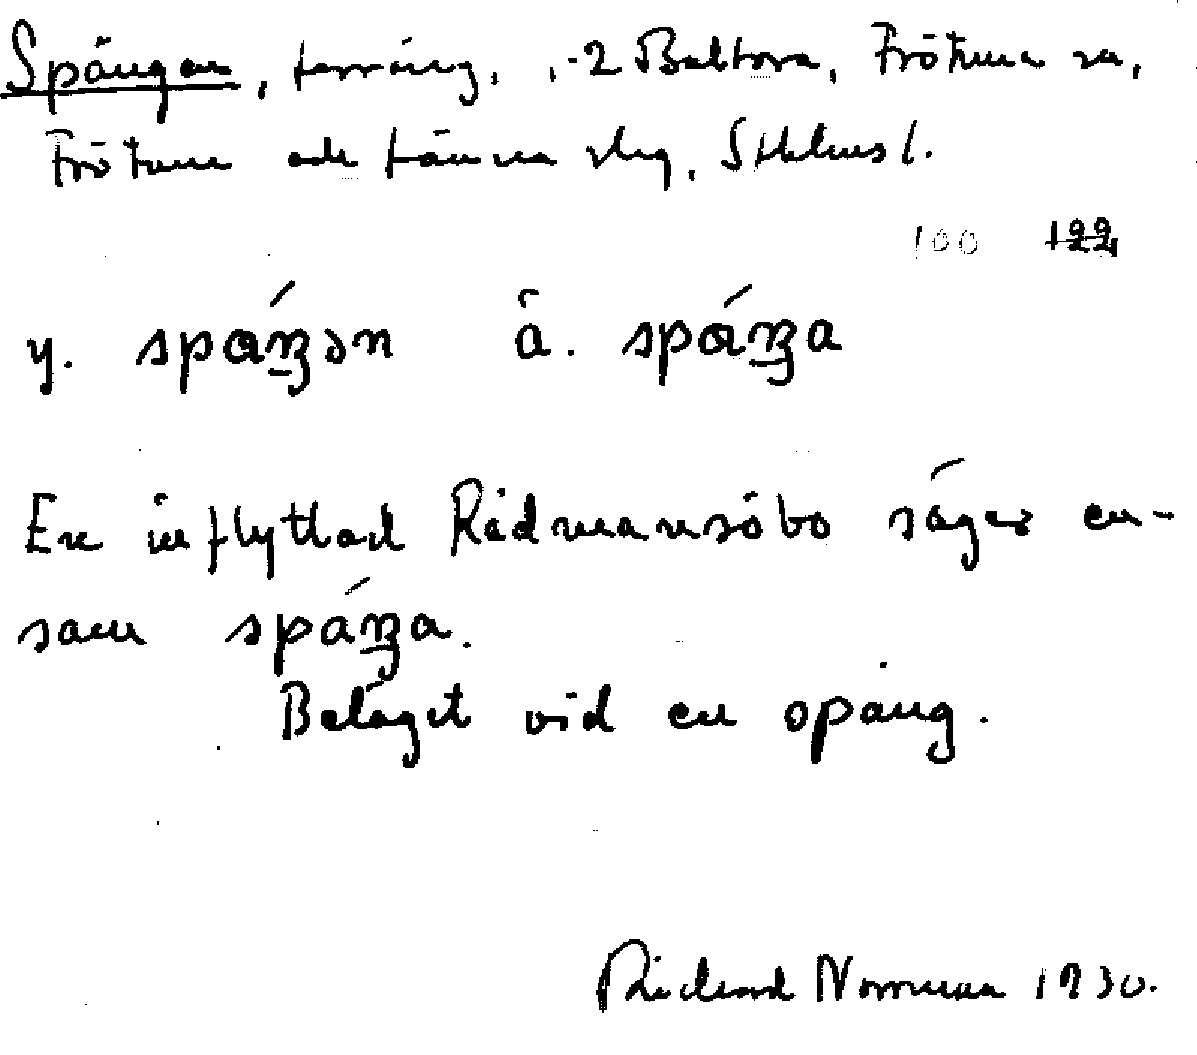 Spängan, terräng, ,-2 Baltora, Frötuna sn,
Frötuna och Länna slg, Sthlms l.
100 122
y. spaŋən ä. spaŋa
En inflyttad Rådmansöbo säger en-
sam spáŋa.
Beläget vid en spång.
Richard Norrman 1930.